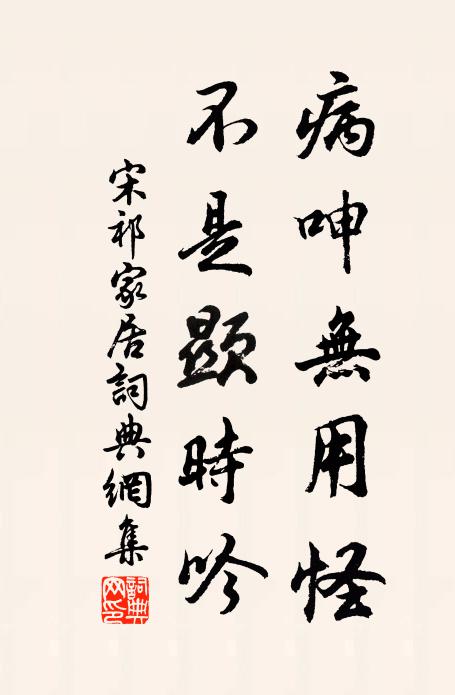 病呻無用怪
不是顯時吟
宋祁家居詞典網集
詞典网印